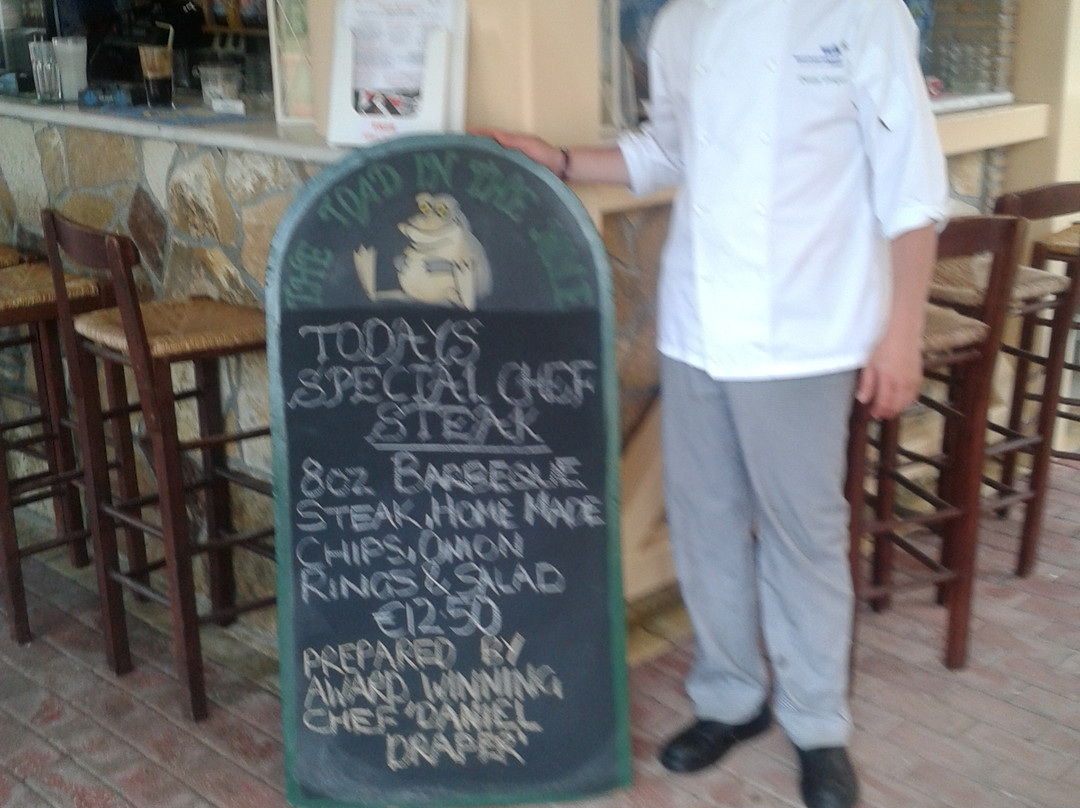 THE TOAD IN THE
TODAYS
SPECIAL CHEF
STEAK
8OZ BARBEQUE
STEAK, HOME MADE
CHIPS, ONION
RINGS & SALAD
€12.50
PREPARED BY
AWARD WINNING
CHEF "DANIEL
DRAPER"